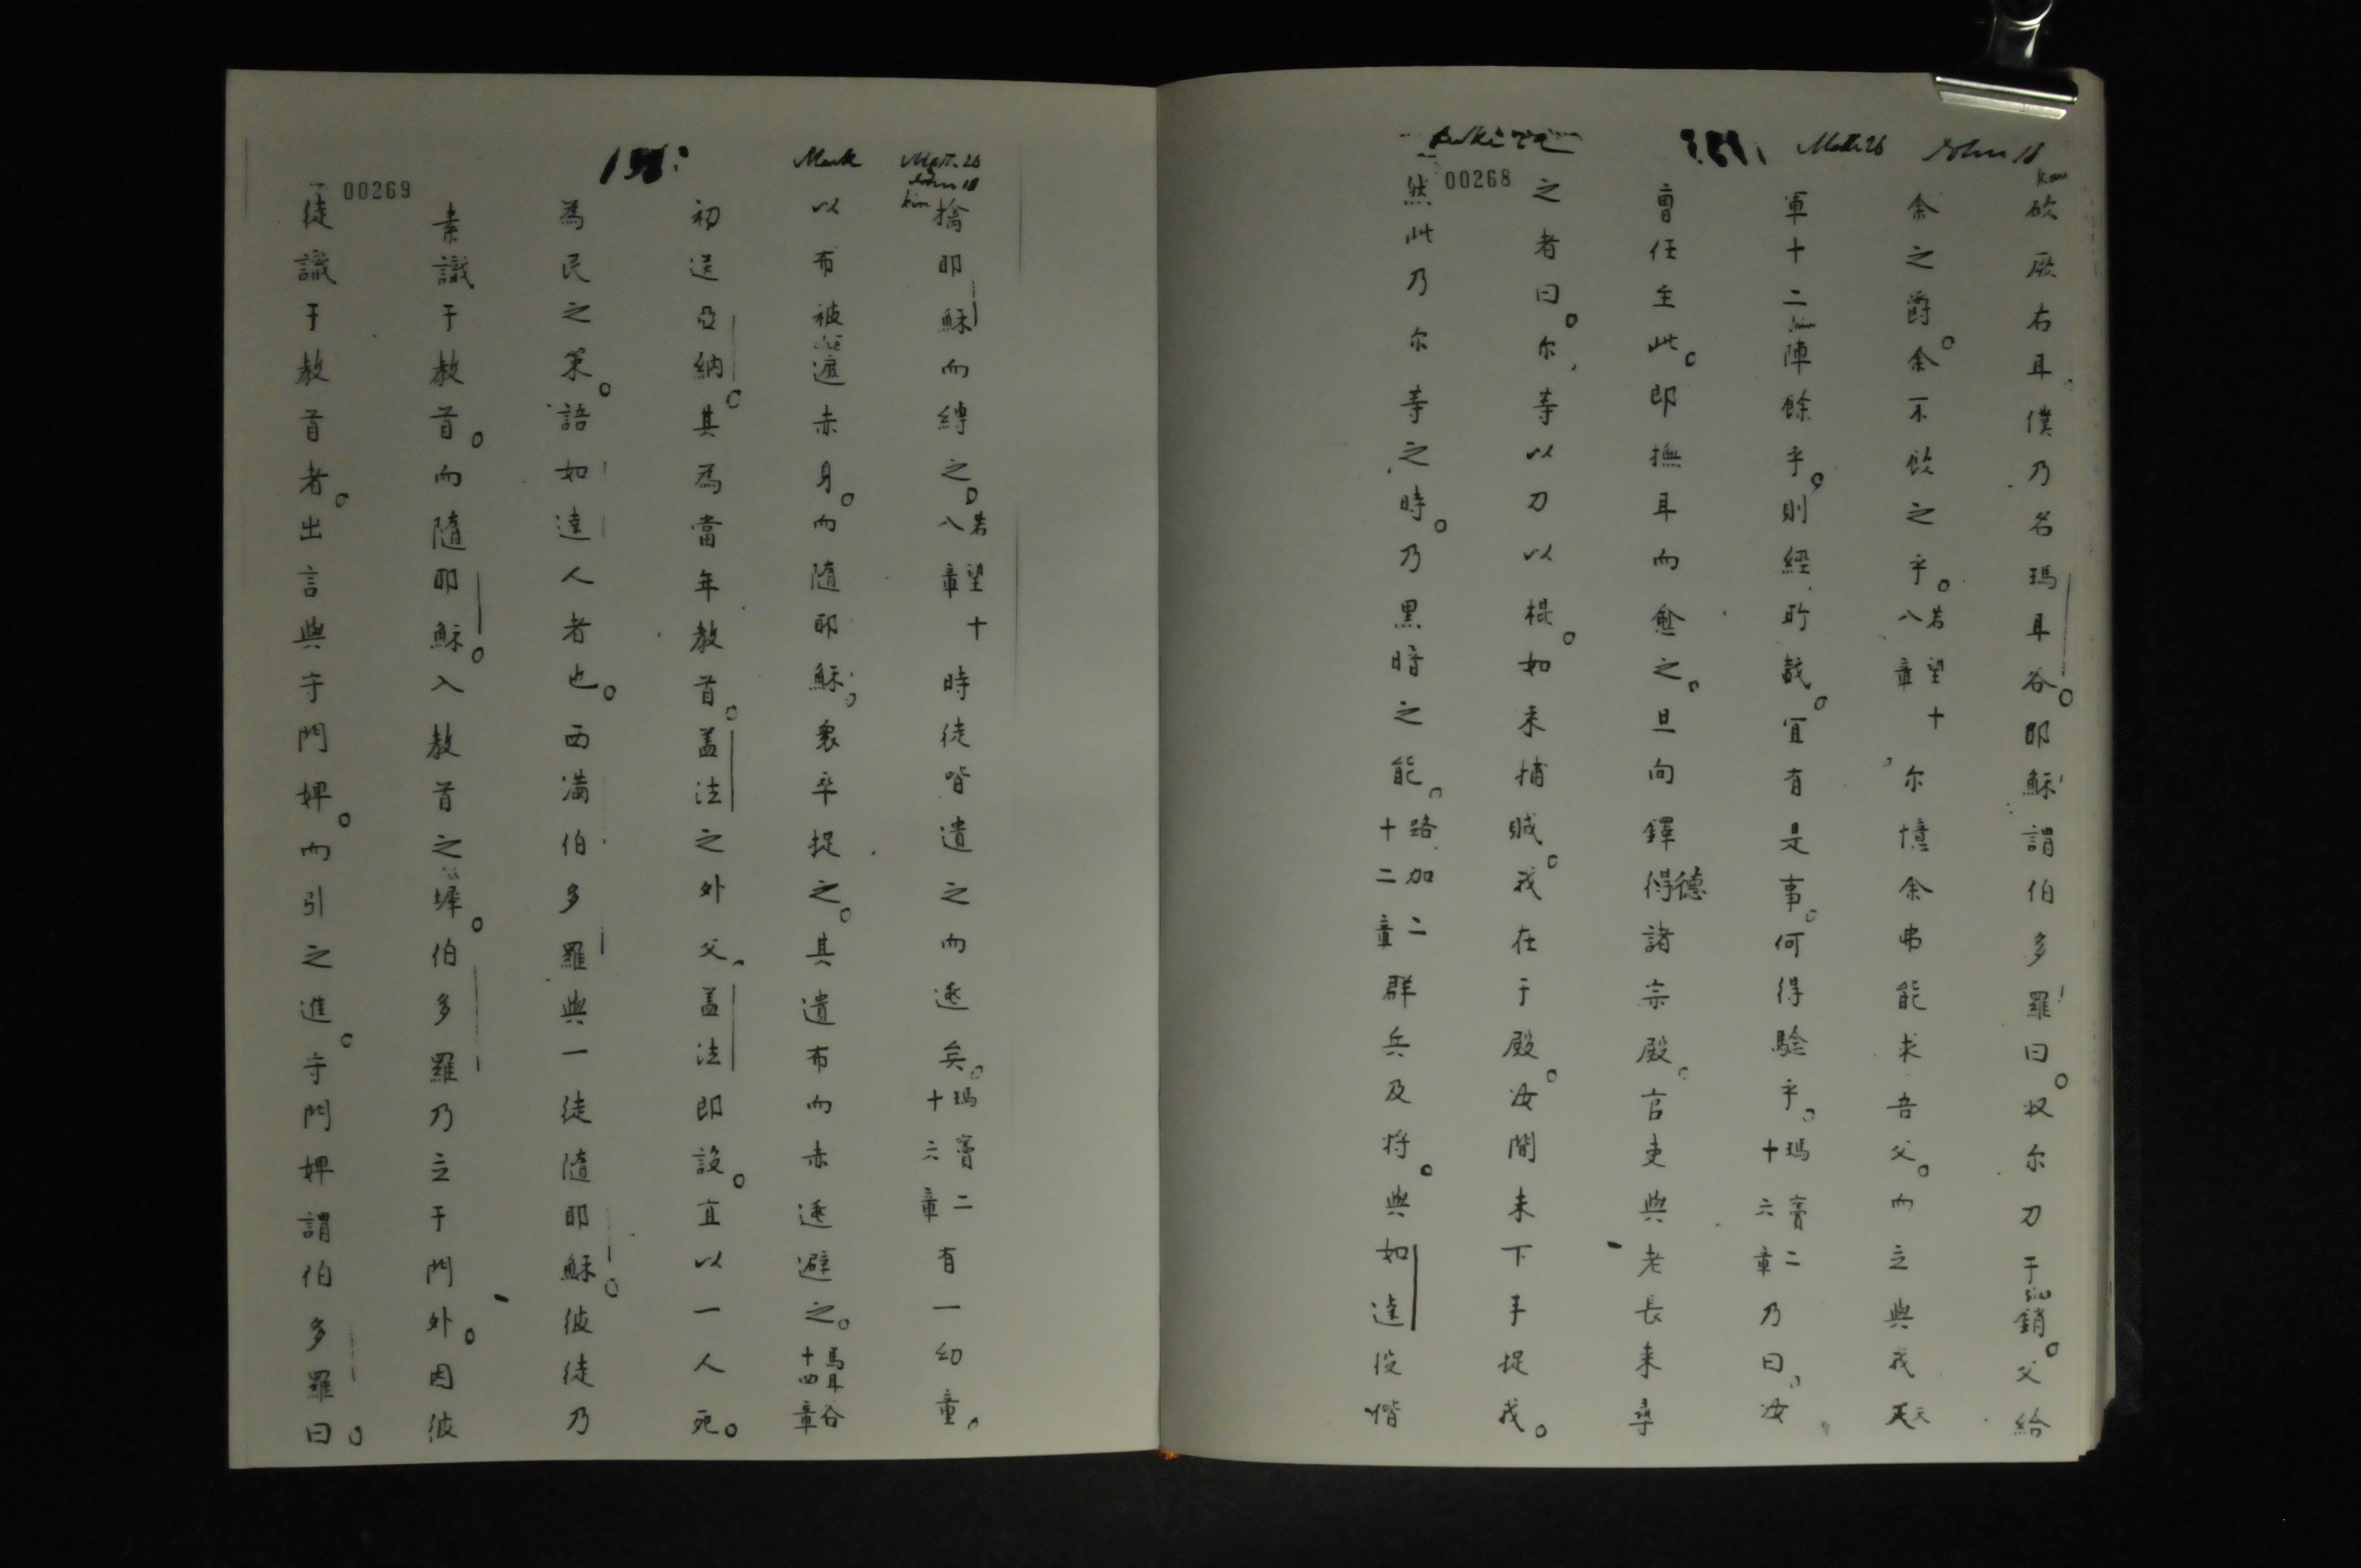 John 18
Matt. 26
00268
砍厥右耳僕乃名瑪耳谷。耶穌謂伯多羅曰。收尔刀于銷。父給
余之爵。余不飲之乎。若望十八章尔憶余弗能求吾父。而立與我天天
軍十二陣餘乎。則經所載。宜有是事。何得驗乎。瑪竇二十六章乃曰。汝
曹任至此。即撫耳而愈之。且向鐸得德諸宗殿。官吏與老長来尋
之者曰。尔等以刀以棍。如来捕賊。我在于殿。汝間未下手捉我。
然此乃尔等之時。乃黑暗之能。路加二十二章群兵及将。與如達役偕
Matt. 26
John 18
Mark
00269
擒耶穌而縛之。若望十八章時徒皆遺之而逃矣。瑪竇二十六章有一幼童。
以布被遮赤身。而随耶穌。衆卒捉之。其遺布而赤逃避之。馬耳谷十四章
初送亞納。其為當年教首。盖法之外父。盖法即設。宜以一人死。
為民之策。語如達人者也。西满伯多羅與一徒隨耶穌。彼徒乃
素識于教首。而隨耶穌。入教首之墀。伯多羅乃立于門外。因彼
徒識于教首者。出言與守門婢。而引之進。守門婢謂伯多羅曰。